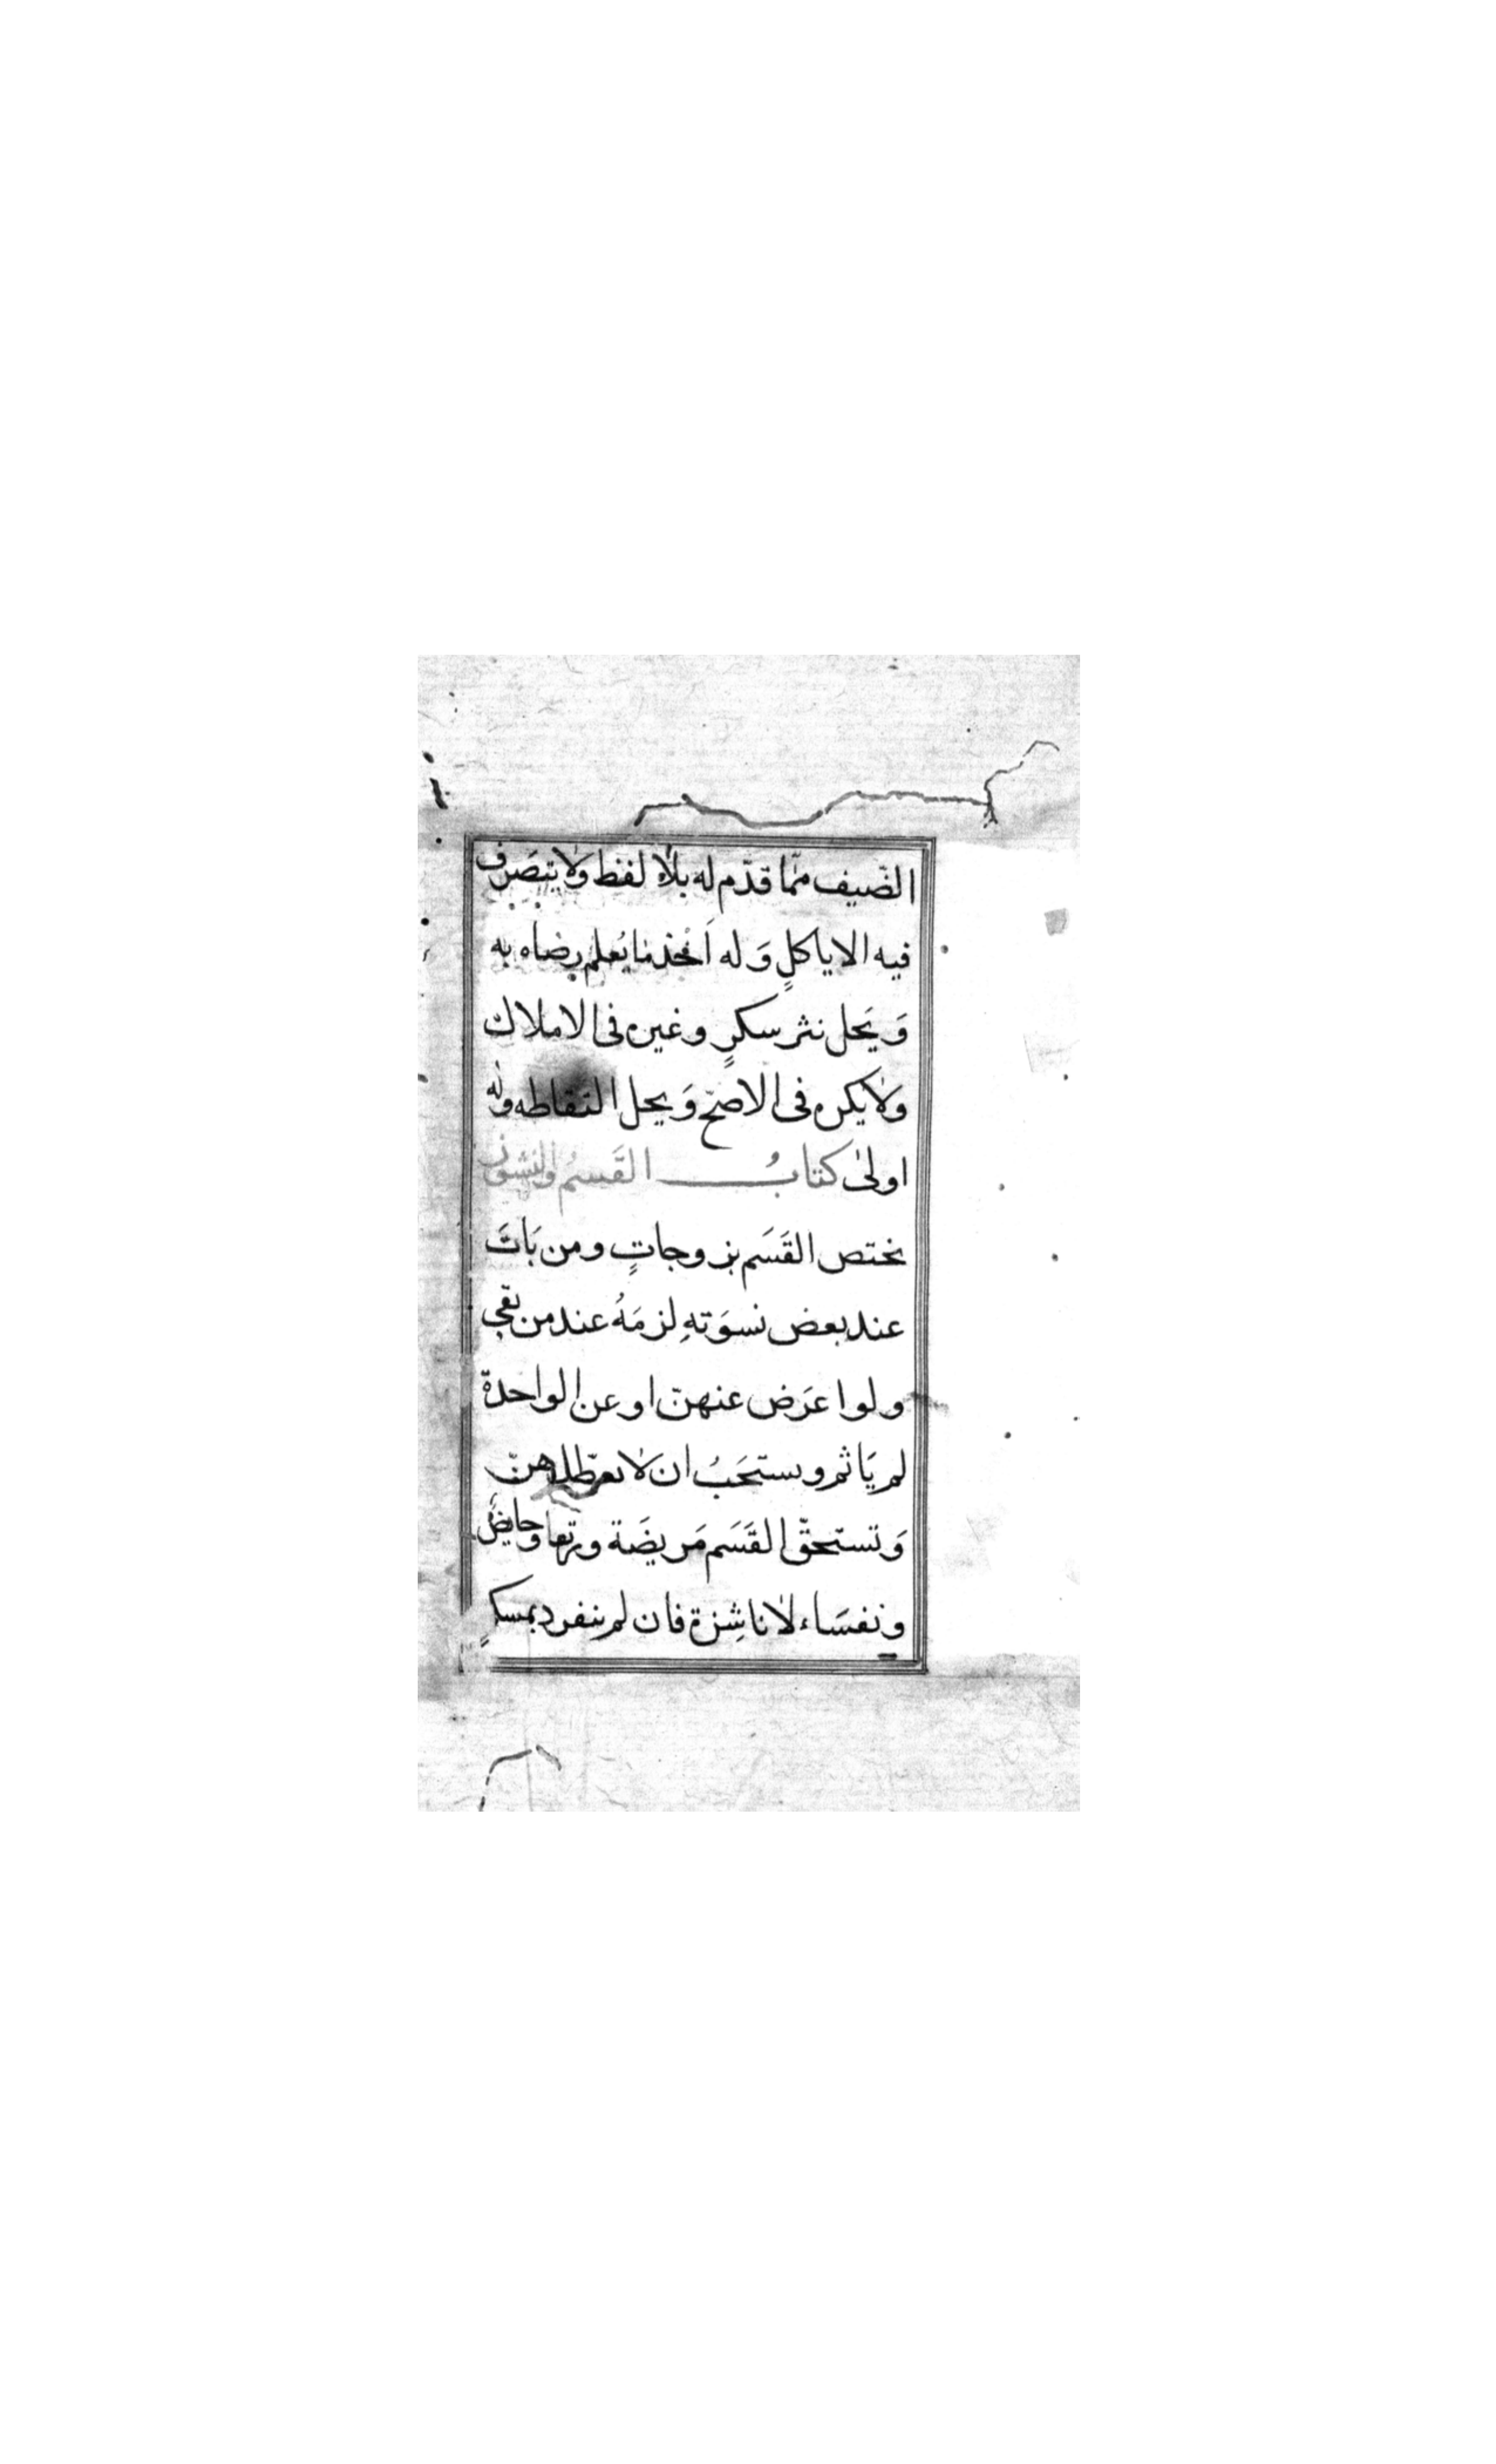 الضّيف ممّا قدّم له بلا لفظ ولا يتصَرف
فيه الا ياكلٍ وَله اَخذ ما يُعلم رضاه به
وَيَحل نثر سكرٍ وغيره فى الاملاك
ولا يكره فى الاصَحّ وَيحل التقاطه
اولىٰ كتابُ القَسمُ والنشوز
يختص القَسَم بزوجاتٍ ومن بَاتَ
عند بعض نسوَتهِ لزمَهُ عند من بقي
ولو اعرَض عنهنّ او عن الواحدة
لم يَاثم ويستحَبُ ان لا يعطلهنّ
وَتستحقّ القَسَم مَريضَة ورتقا وحايض
ونفسَاء لا ناشِزة فان لم ينفرد بمسكنٍ